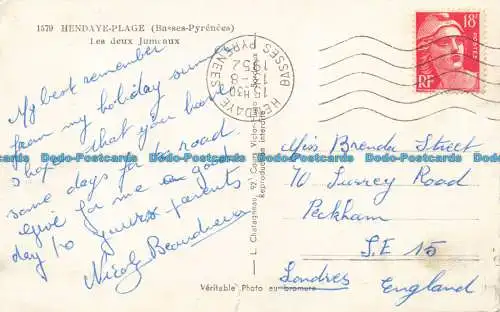 1579 HENDAYE-PLAGE (Basses-Pyrénées)
Les deux Jumeaux
My best remember
from my holiday sunny
I hope that you have
some days for to road.
Give for me a good
day to yours parents
Nicole
HENDAYE
BASSES PYRENEES
15H30
1-8
1952
18F
POSTES
RF
Miss Brenda Street
70 Surrey Road
Peckham
S.E 15
Londres England
L. Chatagneau, 92, Cours Victor-Hugo, Bordeaux
Reproduction interdite
Véritable Photo au bromure
Dodo-Postcards.com Dodo-Postcards.com Dodo-Postcards.com Dodo-Postcards.com